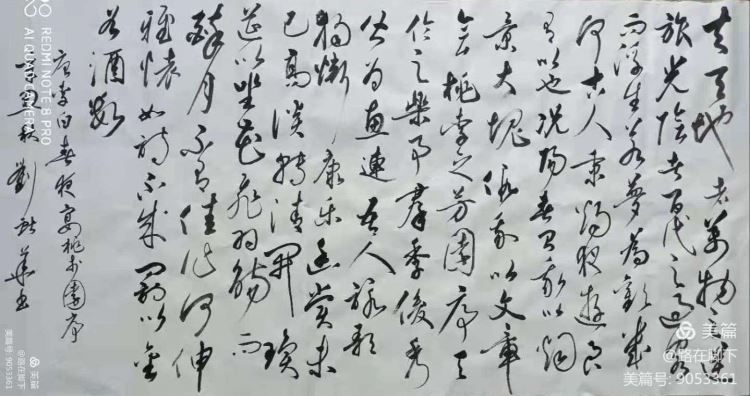 夫天地者萬物之逆
旅光陰者百代之過客
而浮生若夢為歡幾
何古人秉燭夜遊良
有以也況陽春召我以煙
景大塊假我以文章
會桃李之芳園序天
倫之樂事群季俊秀
皆為惠連吾人詠歌
獨慚康樂幽賞未
已高談轉清開瓊
筵以坐花飛羽觴而
醉月不有佳作何伸
雅懷如詩不成罰以金
谷酒數
唐李白春夜宴桃李園序
劉 華書
REDMI NOTE 8 PRO
AI QUAD CAMERA
美篇
@路在脚下
美篇号: 9053361
美篇
@路在脚下
美篇号: 9053361